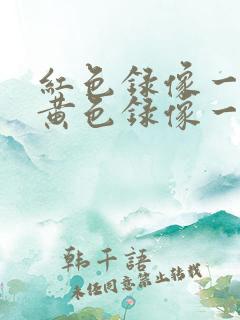 紅色錄像一
黃色錄像一
韩千語
未经同意禁止转载